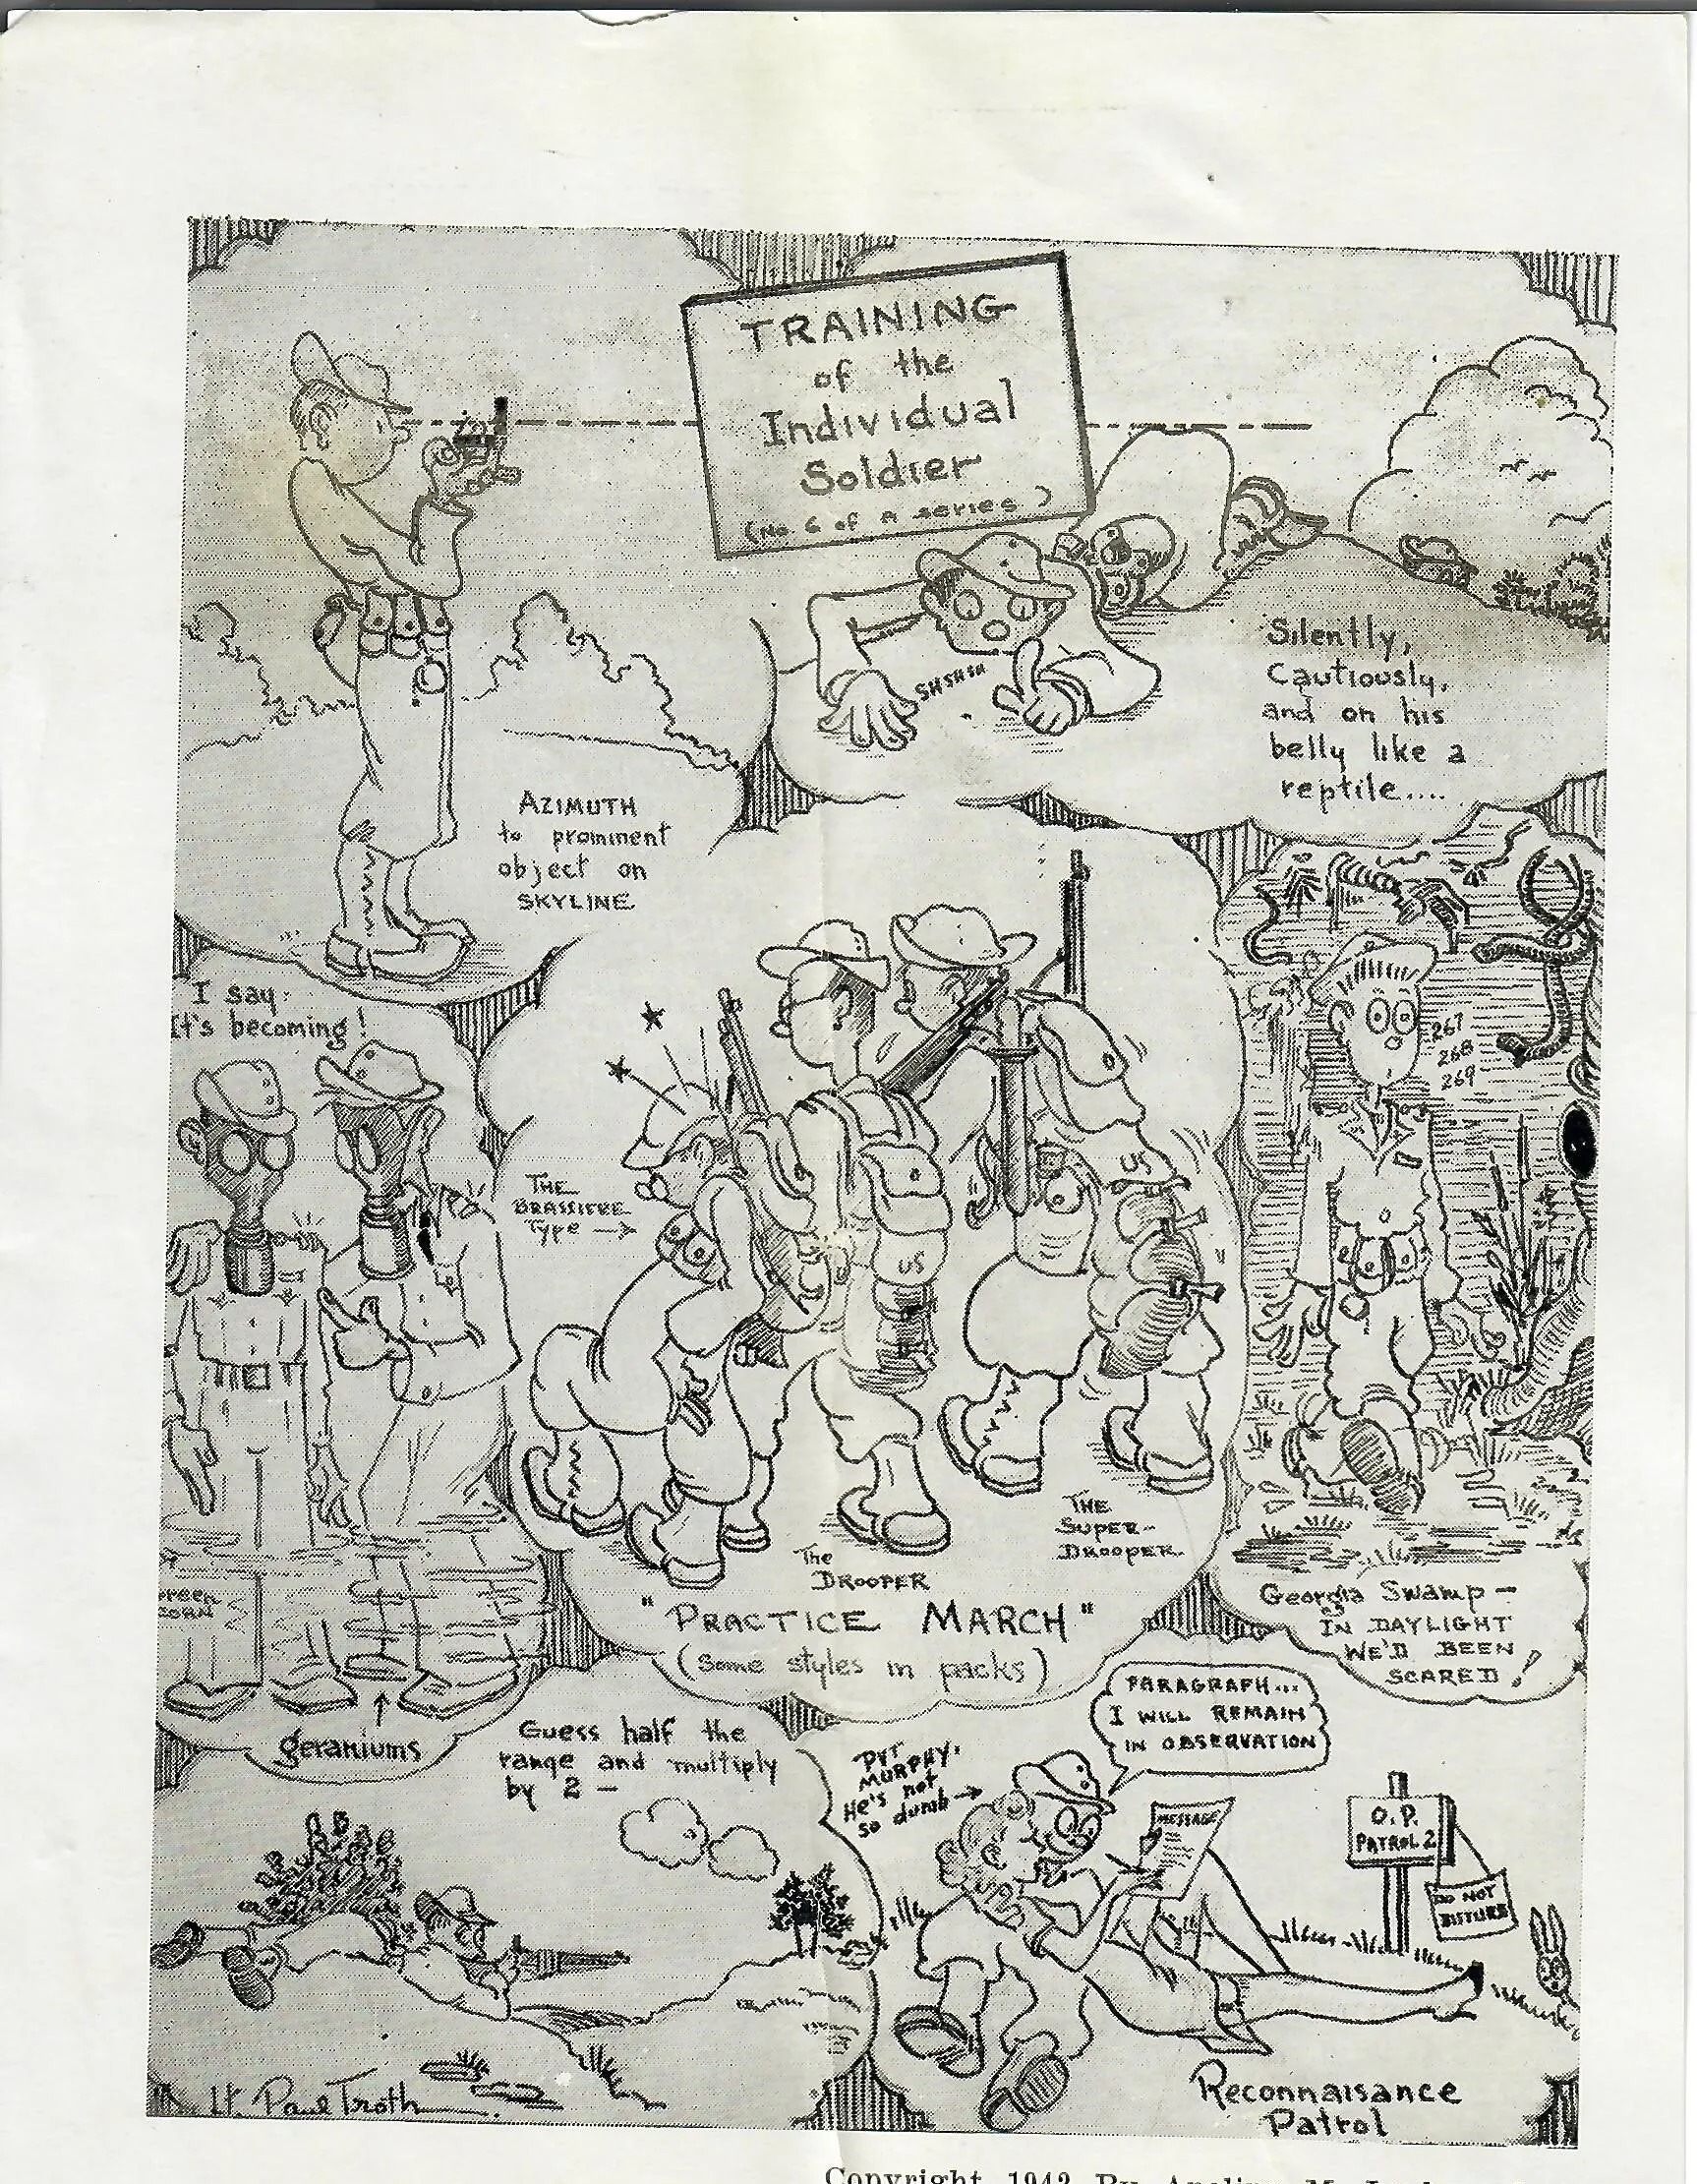 TRAINING
of the
Individual
Soldier
(No. 6 of A series)
SHSHSH
Silently,
Cautiously,
and on his
belly like a
reptile....
AZIMUTH
to prominent
object on
SKYLINE
I say:
It's becoming!
THE
BRASSIERE
Type →
US
US
267
268
269
THE
SUPER-
DROOPER
The
DROOPER
"PRACTICE MARCH"
(Some styles in packs)
CORN
geraniums
Georgia Swamp -
IN DAYLIGHT
WE'D BEEN
SCARED!
Guess half the
range and multiply
by 2 -
PVT
MURPHY.
He's not
so dumb →
PARAGRAPH...
I WILL REMAIN
IN OBSERVATION
MESSAGE
O.P.
PATROL 2
DO NOT
DISTURB
Reconnaisance
Patrol
Lt. Paul Troth
Copyright 1942 By